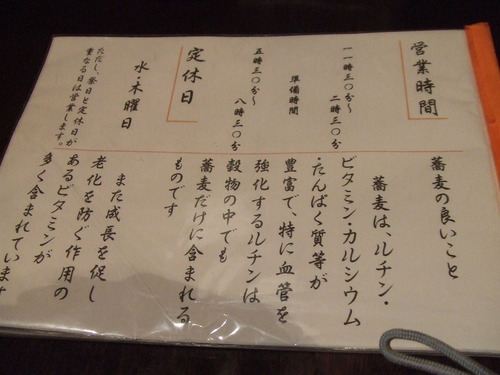 営業時間
一一時三〇分～
二時三〇分
準備時間
五時三〇分～
八時三〇分
定休日
水・木曜日
ただし、祭日と定休日が
重なる日は営業します。
蕎麦の良いこと
蕎麦は、ルチン・
ビタミン・カルシウム
・たんぱく質等が
豊富で、特に血管を
強化するルチンは
穀物の中でも
蕎麦だけに含まれる
ものです
また成長を促し
老化を防ぐ作用の
あるビタミンが
多く含まれています